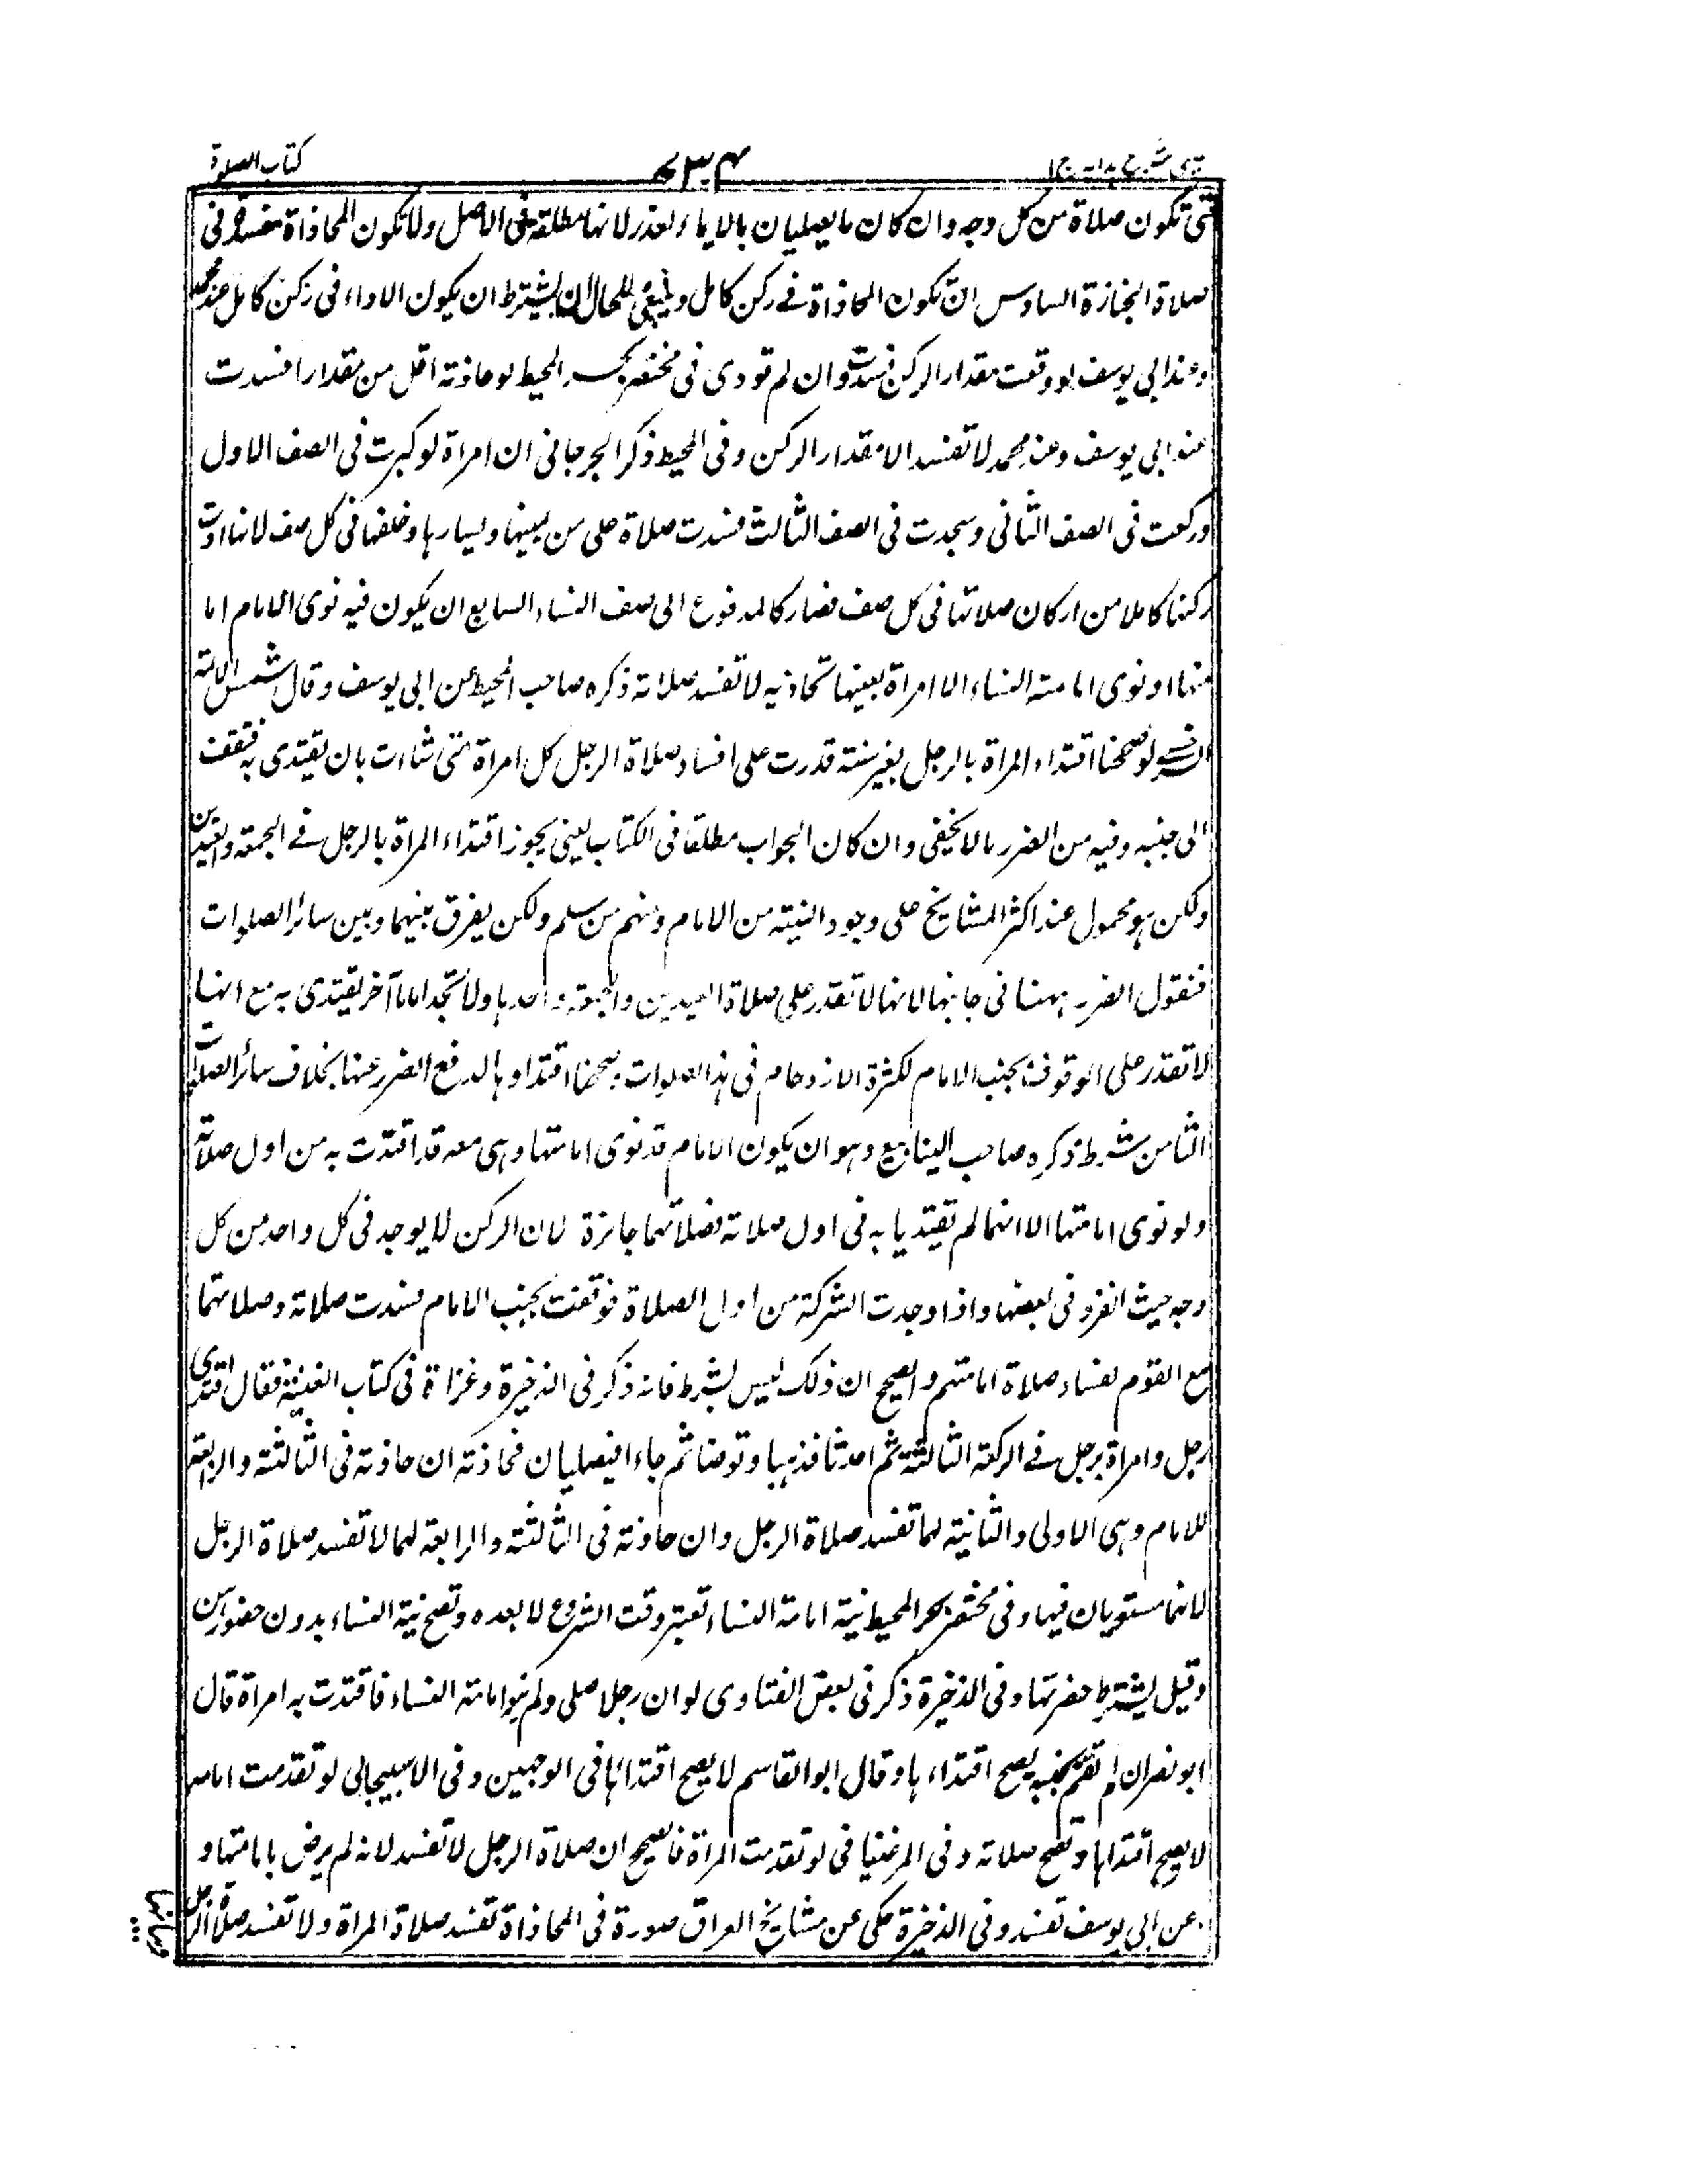 كتاب الصلوة
٧٣٤
حتى تكون صلاة من كل وجه وان كان ما يصليان بالايماء لعذر لانها مطلقة فى الاصل ولا تكون المحاذاة مفسدة فى
صلاة الجنازة السادس ان تكون المحاذاة فى ركن كامل يشترط ان يكون الاداء فى ركن كامل عند محمد
وعند ابى يوسف لو وقعت مقدار الركن فسدت وان لم تودى فى مختصر بحر المحيط لو حاذته اقل من مقدارا فسدت
عند ابى يوسف وعند محمد لا تفسد الا مقدار الركن وفى المحيط ذكر الجرجانى ان امراة لو كبرت فى الصف الاول
وركعت فى الصف الثانى وسجدت فى الصف الثالث فسدت صلاة على من يمينها ويسارها وخلفها فى كل صف لانها ادت
ركنا كاملا من اركان صلاتنا فى كل صف فصار كالمدفوع الى صف النساء السابع ان يكون فيه نوى الامام اما
متها او نوى امامته النساء الا امراة بعينها تحاذيه لا تفسد صلاته ذكره صاحب المحيط عن ابى يوسف وقال شمس الائمة
السرخسى لو صححنا اقتداء المراة بالرجل بغير نية قدرت على افساد صلاة الرجل كل امراة متى شاءت بان تقتدى به فتقف
الى جنبه وفيه من الضرر ما لا يخفى وان كان الجواب مطلقا فى الكتاب يعنى يجوز اقتداء المراة بالرجل فى الجمعة والعيدين
ولكن هو محمول عند اكثر المشايخ على وجود النية من الامام ومنهم من سلم ولكن يفرق بينهما وبين سائر الصلوات
فنقول الضرر ههنا فى جانبها لانها لا تقدر على صلاة العيدين والجمعة وحدها ولا تجد اماما آخر تقتدى به مع انها
لا تقدر على الوقوف بجنب الامام لكثرة الازدحام فى هذه الصلوات فصححنا اقتداوها لدفع الضرر عنها بخلاف سائر الصلوات
الثامن شرط ذكره صاحب الينابيع وهو ان يكون الامام قد نوى امامتها وهى معه قد اقتدت به من اول صلاته
ولو نوى امامتها الا انهما لم يقتديا به فى اول صلاته فصلاتهما جائزة لان الركن لا يوجد فى كل واحد من كل
وجه حيث انفرد فى بعضها واذا وجدت الشركة من اول الصلاة فوقفت بجنب الامام فسدت صلاته وصلاتهما
مع القوم لفساد صلاة امامتهم والصحيح ان ذلك ليس بشرط فانه ذكر فى الذخيرة وعزاة فى كتاب الغنية فقال اقتدى
رجل وامراة برجل فى الركعة الثالثة ثم احدثا فذهبا وتوضا ثم جاءا فيصليان فحاذته ان حاذته فى الثالثة والرابعة
للامام وهى الاولى والثانية لهما تفسد صلاة الرجل وان حاذته فى الثالثة والرابعة لهما لا تفسد صلاة الرجل
لانهما مستويان فيها وفى مختصر بحر المحيط نية امامة النساء تعتبر وقت الشروع لا بعده وتصح نية النساء بدون حضورهن
وقيل يشترط حضرتها وفى الذخيرة ذكر فى بعض الفتاوى لو ان رجلا صلى ولم ينو امامته النساء فاقتدت به امراة قال
ابو نصر ان لم تقم بجنبه يصح اقتداءها وقال ابو القاسم لا يصح اقتداءها فى الوجهين وفى الاسبيجابى لو تقدمت امامه
لا يصح اقتداءها وتصح صلاته وفى المرغينانى لو تقدمت المراة فالصحيح ان صلاة الرجل لا تفسد لانه لم يرض بامامتها و
عن ابى يوسف تفسد وفى الذخيرة حكى عن مشايخ العراق صورة فى المحاذاة تفسد صلاة المراة ولا تفسد صلاة الرجل